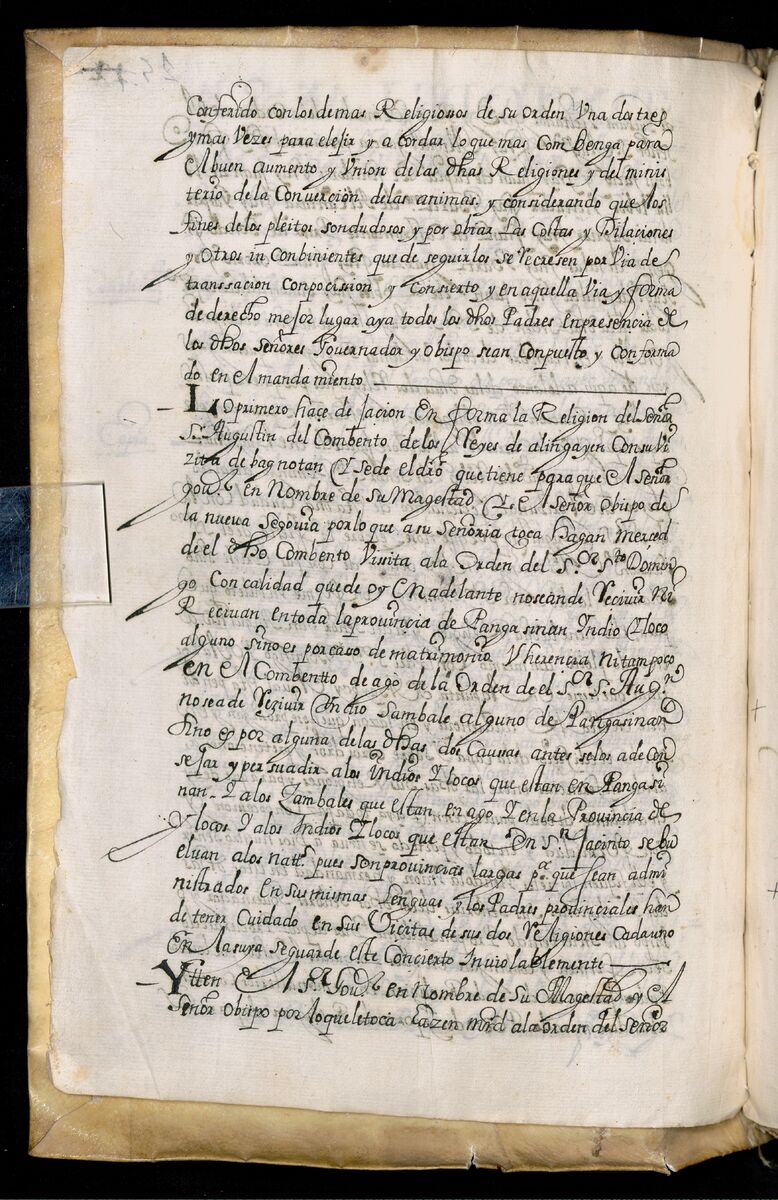 Conferido con los demas Religiossos de su orden Una dos tres
y mas Vezes para elejir y acordar lo que mas Combenga para
el buen aumento y Union de las dhas Religiones y del minis
terio de la Converçion de las animas. y considerando que los
fines de los pleitos son dudosos y por obiar las Costas y Dilaciones
y otros in Conbinientes que de seguirlos se recresen por Via de
transsacion conpocission y consierto y en aquella Via y forma
de derecho mejor lugar aya todos los dhos Padres en presencia de
los dhos señores Governador y obispo sean Conpuesto y Conforma
do en el mandamiento
Lo primero haçe dejacion En forma la Religion del señor
S. Augustin del Combento de los Reyes de alingayen Con su Vi
zita de bagnotan y sede el dro que tiene para que el señor
gov.or en Nombre de su Magestad y el señor obispo de
la nueva segovia por lo que a su señoria toca hagan merced
de el dho Combento Vissita a la Orden del s.or s.to Domin
go Con calidad que de oy En adelante no sean de Recivir Ni
Recivan en toda la provincia de Pangasinan Indio Yloco
alguno sino es por casso de matrimonio V herencia ni tampoco
en el Combentto de ago de la Orden de el s.or s. Aug.n
no sea de Rezivir Indio Sambale alguno de Pangasinan
sino es por alguna de las dhas dos Causas antes se los a de Con
sejar y persuadir a los Indios Ylocos que estan en Pangasi
nan. Y a los Zambales que estan en ago Y en la Provincia de
Ylocos Y a los Indios Ylocos que estan En S.n Jacinto se bu
elvan a los natt.s pues son provincias largas p.a que sean admi
nistrados En sus mismas Lenguas y los Padres provinciales han
de tener Cuidado en sus Vicitas de sus dos Religiones Cada uno
En la suya se guarde este Concierto Inviolablemente
Ytten El s.or Gov.or en Nombre de Su Magestad y el
señor Obispo por lo que le toca hazen mrd a la orden del señor